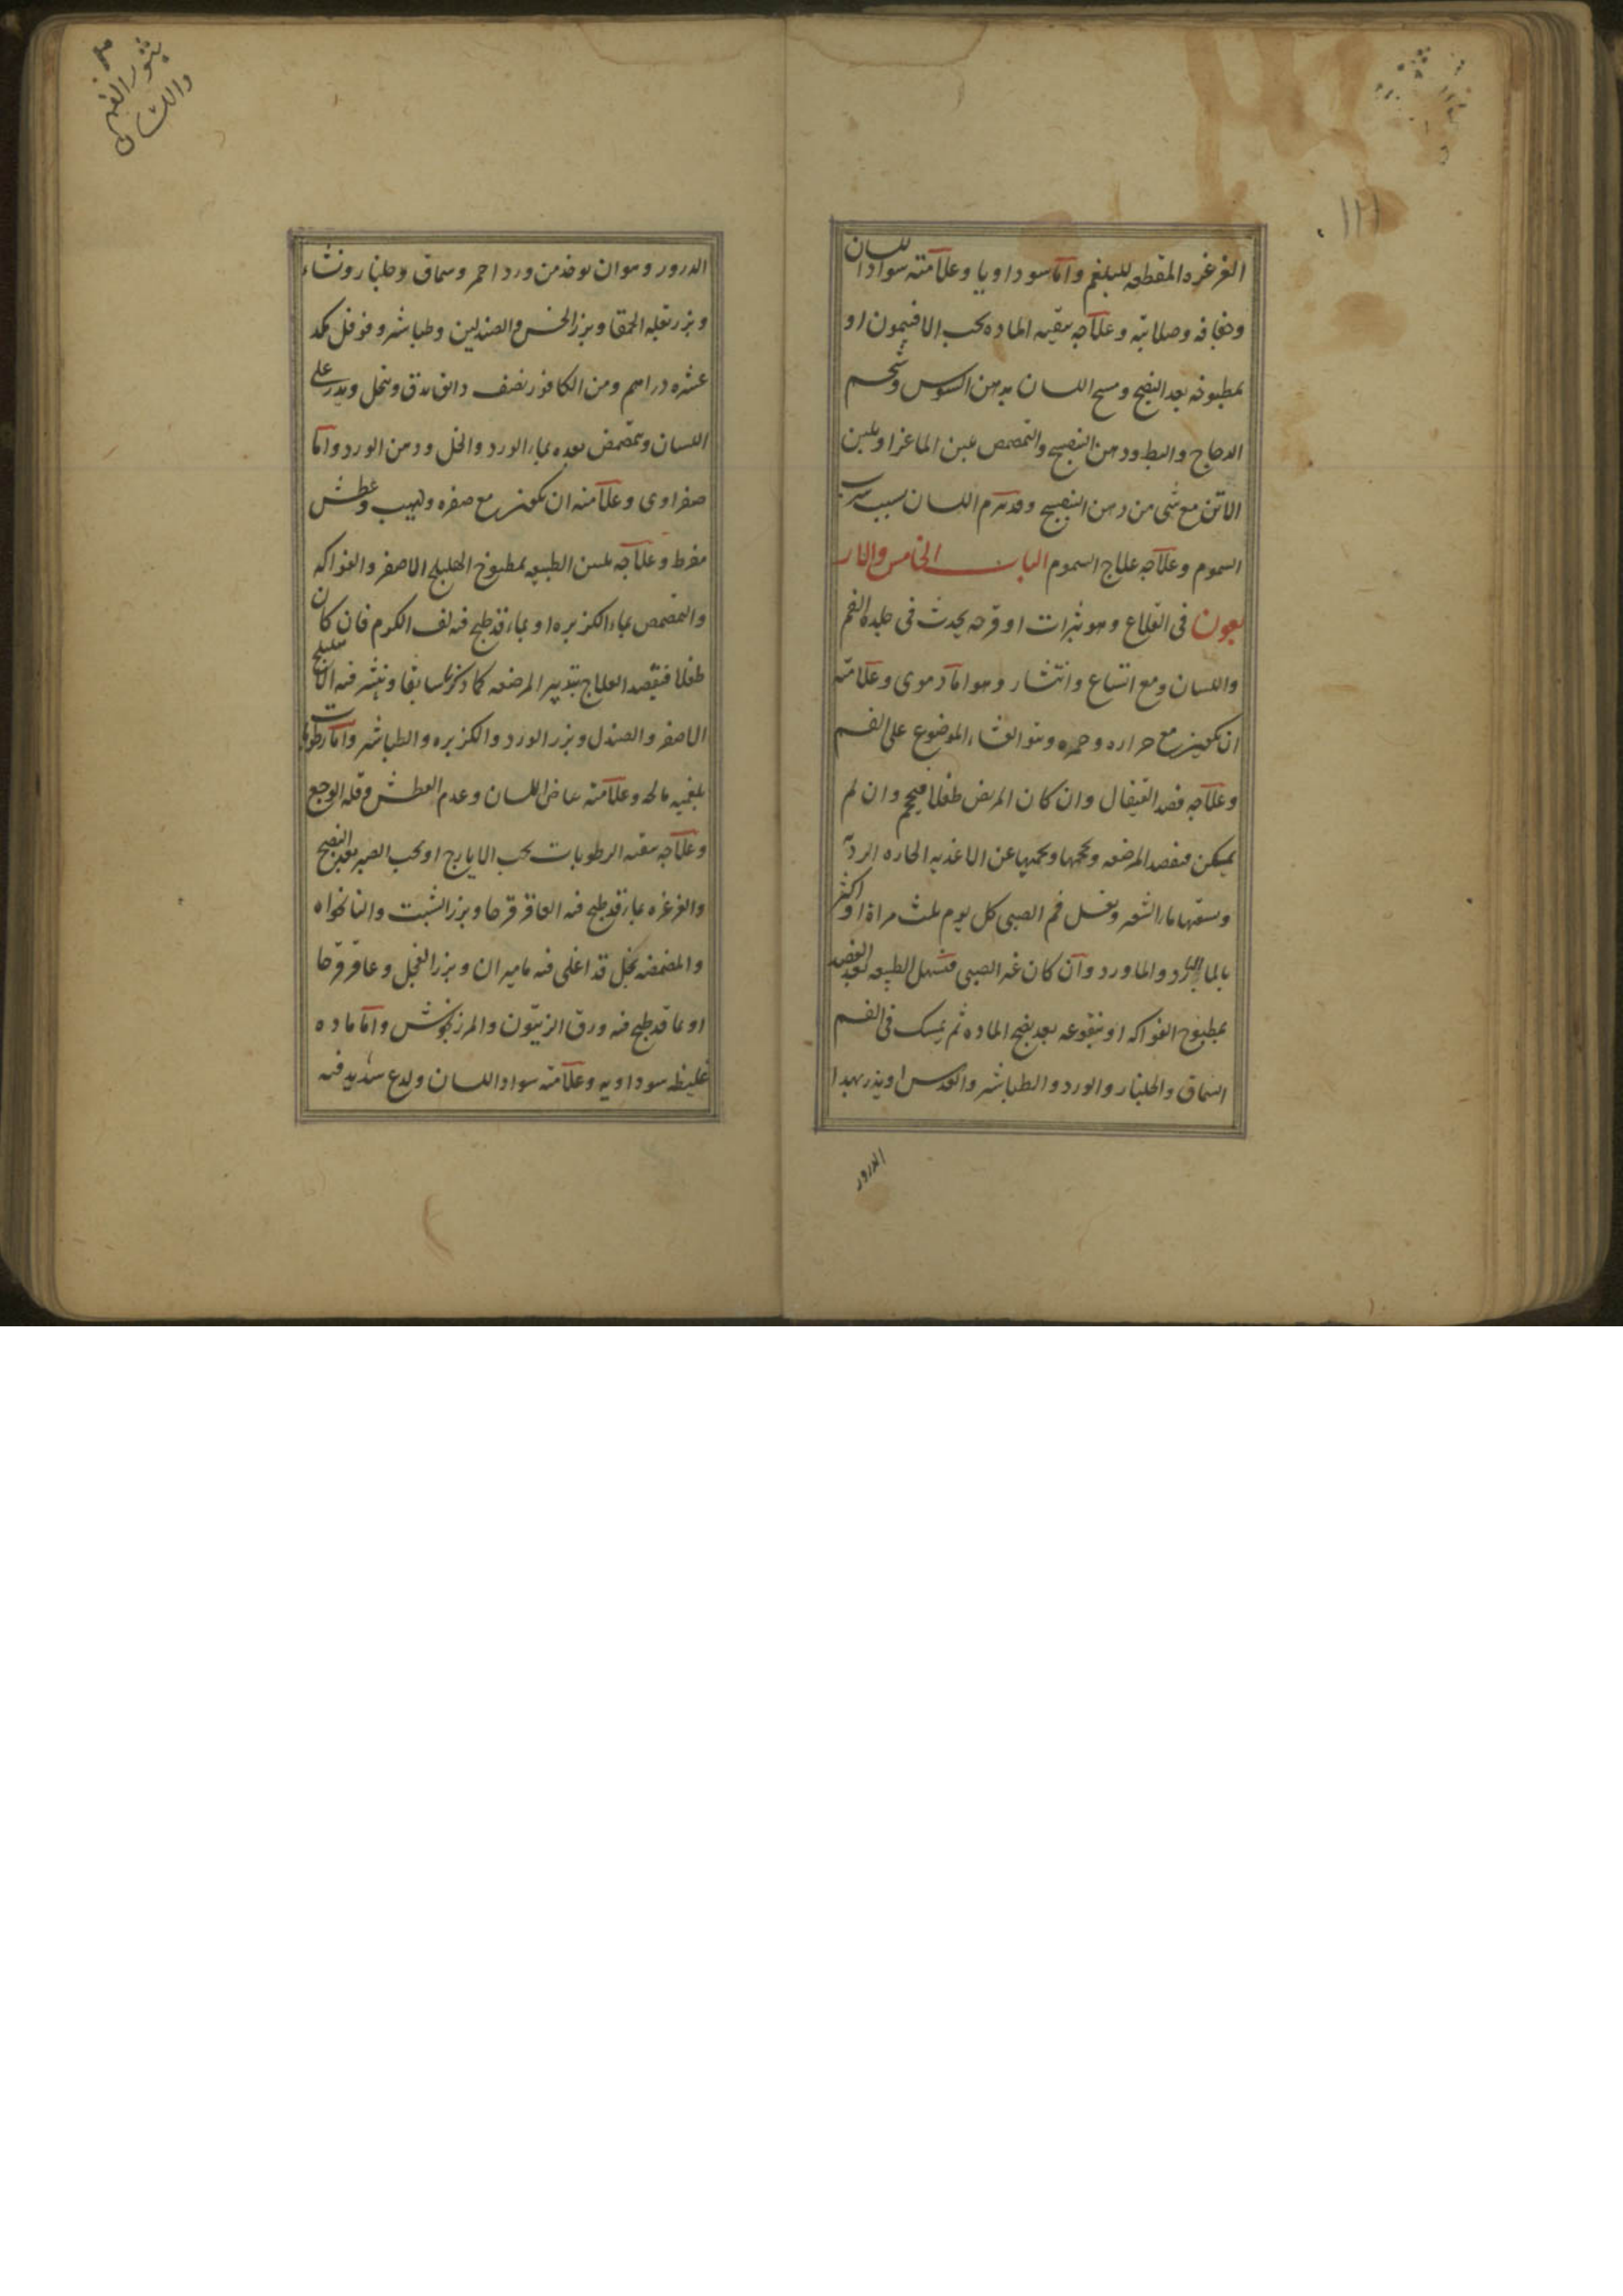 الغرغره المقطعه للبلغم واما سوداويا وعلامته سواد اللسان
وجفافه وصلابته وعلاجه تنقيه الماده بحب الافتيمون او
بمطبوخه بعد النضج ومسح اللسان بدهن السوس وشحم
الدجاج والبط ودهن البنفسج والتمضمض بلبن الماعز او بلبن
الاتن مع شى من دهن البنفسج وقد يرم اللسان بسبب شرب
السموم وعلاجه علاج السموم الباب الخامس والار
بعون فى القلاع وهو بثرات او قرحه يحدث فى جلده الفم
واللسان ومع اتساع وانتشار وهو اما دموى وعلامته
ان يكون مع حراره وحمره ونتو الغشاء الموضوع على الفم
وعلاجه فصد القيفال وان كان المريض طفلا فيحجم وان لم
يمكن فيفصد المرضعه ويحجمها ويحميها عن الاغذيه الحاره الرديه
وسقيها ماء الشعير ويغسل فم الصبى كل يوم ثلث مراة او اكثر
بالماء البارد والماورد وان كان غير الصبى فيسهل الطبيعه بعد الفصد
بمطبوخ الفواكه او بنقوعه بعد نضج الماده ثم يمسك فى الفم
السماق والجلنار والورد والطباشير والعدس او يذر بهدا
الدرور
بثور الفم
واللسان
الدرور وهو ان يوخذ من ورد احمر وسماق وجلنار ونشاء
وبزر بقله الحمقا وبزر الخس والصندلين وطباشير وفوفل مكد
عشره دراهم ومن الكافور نصف دانق يدق وينخل ويدر على
اللسان ويتمضمض بعده بماء الورد والخل ودهن الورد واما
صفراوى وعلامته ان يكون مع صفره ولهيب وعطش
مفرط وعلاجه تليين الطبيعه بمطبوخ الهليلج الاصفر والفواكه
والتمضمض بماء الكزبره او بماء قد طبخ فيه لف الكرم فان كان
طفلا فيقصد العلاج بتدبير المرضعه كما ذكر سابقا وينثر فيه الهليلج
الاصفر والصندل وبزر الورد والكزبره والطباشير واما رطوبات
بلغميه مالحه وعلامته بياض اللسان وعدم العطش وقله الوجع
وعلاجه تنقيه الرطوبات بحب الايارج او بحب الصبر بعد النضج
والغرغره بماء قد طبخ فيه العاقرقرحا وبزر الشبت والنانخواه
والمضمضه بخل قد اغلى فيه ماميران وبزر الفجل وعاقرقرحا
او بما قد طبخ فيه ورق الزيتون والمرزنجوش واما ماده
غليظه سوداويه وعلامته سواد اللسان ولدع شديد فيه